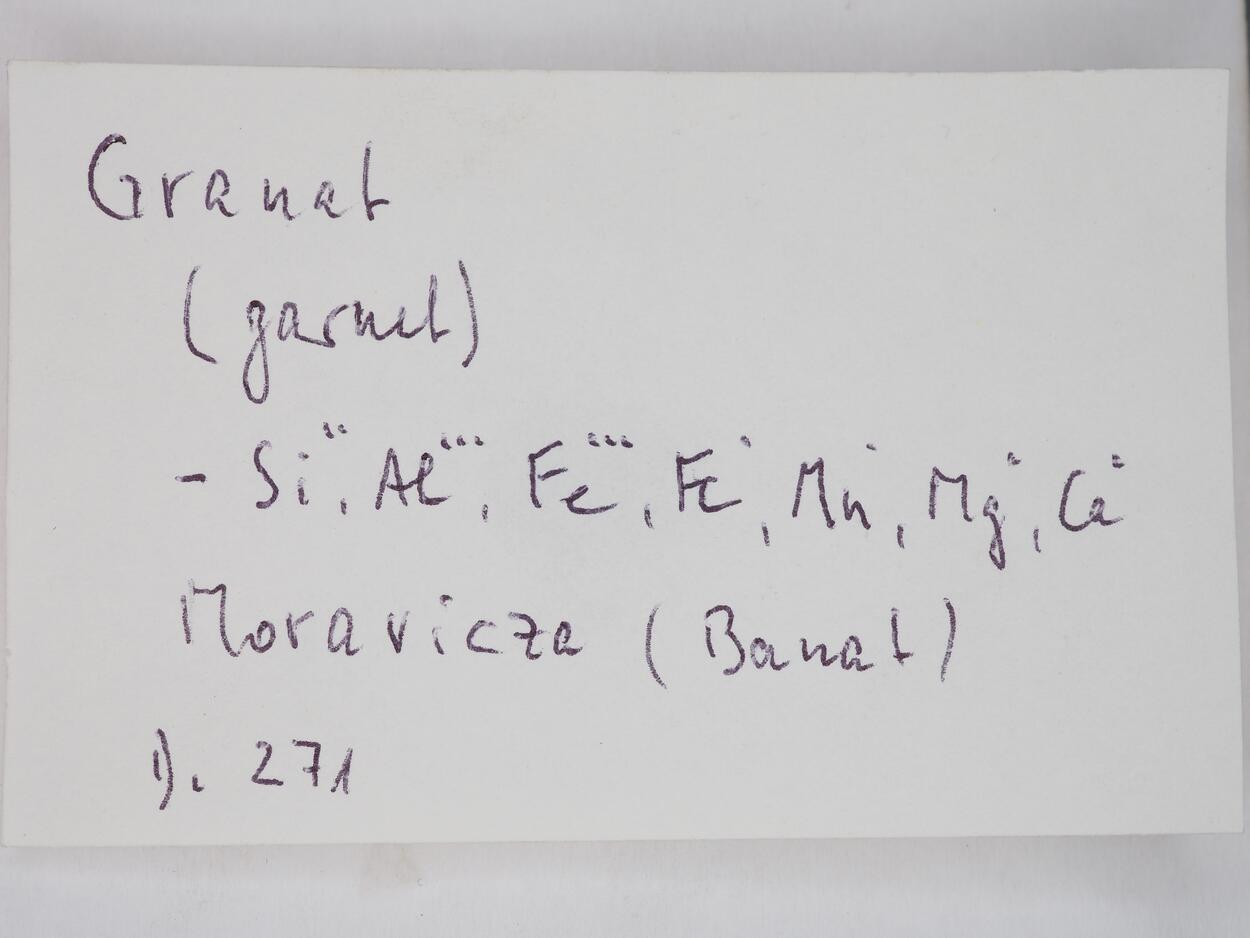 Granat
(garnet)
- Si¨, Al⃛, Fe⃛, Fe˙, Mn˙, Mg˙, Ca˙
Moravicza (Banat)
D. 271